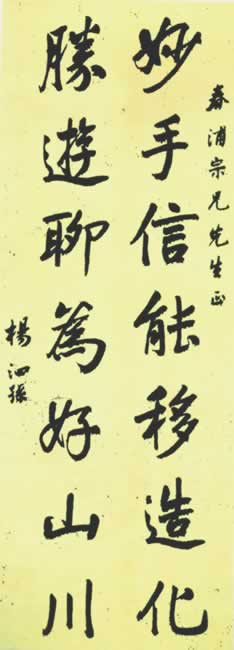 春浦宗兄先生正
妙手信能移造化
勝遊聊為好山川
楊泗孫